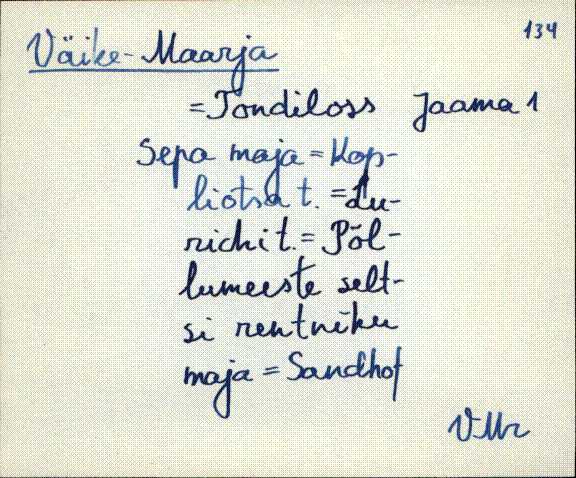 134
Väike-Maarja
=Tondiloss Jaama 1
Sepa maja = Kop-
liotsa t. = Lu-
richi t. = Põl-
lumeeste selt-
si rentniku
maja = Sandhof
VMr